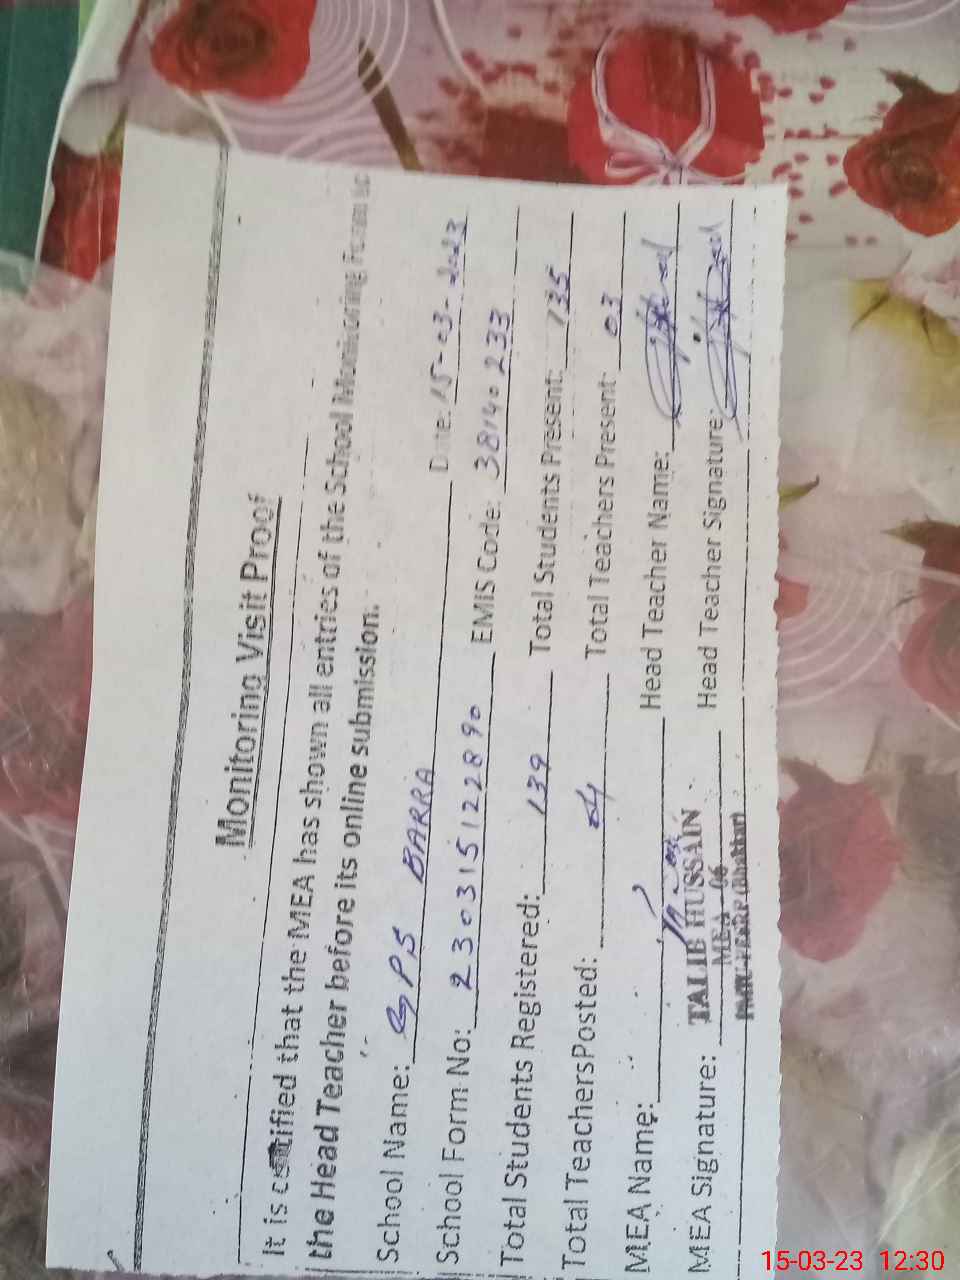 Monitoring Visit Proof
It is certified that the MEA has shown all entries of the School Monitoring Form to
the Head Teacher before its online submission.
School Name: GPS BARRA Date: 15-03-2023
School Form No: 230315122890 EMIS Code: 38140233
Total Students Registered: 139 Total Students Present: 135
Total Teachers Posted: 04 Total Teachers Present: 03
MEA Name: Head Teacher Name:
TALIB HUSSAIN
MEA Signature: MEA-06 Head Teacher Signature:
15-03-23 12:30